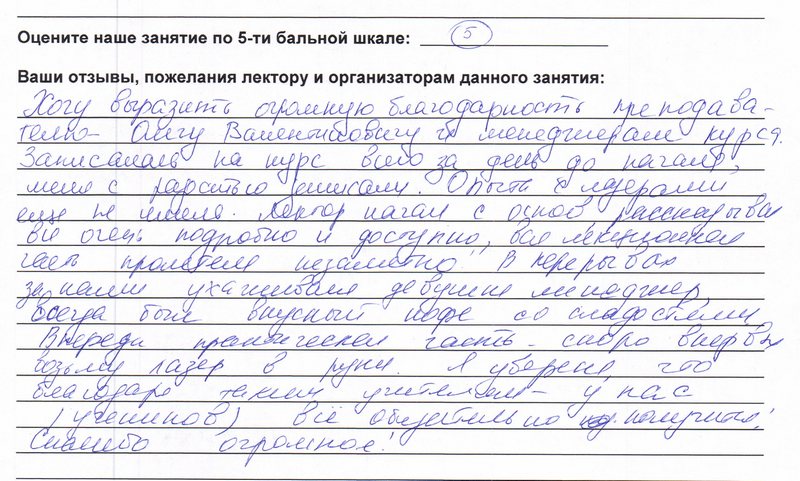 Оцените наше занятие по 5-ти бальной шкале: 5
Ваши отзывы, пожелания лектору и организаторам данного занятия:
Хочу выразить огромную благодарность преподава-
телю - Олегу Валентиновичу и менеджерам курса.
Записалась на курс всего за день до начала,
меня с радостью записали. Опыта с лазерами
еще не имела. Лектор начал с основ рассказывал
всё очень подробно и доступно, вся лекционная
часть пролетела незаметно! В перерывах
за нами ухаживала девушка менеджер,
всегда был вкусный кофе со сладостями.
Впереди практическая часть - скоро впервые
возьму лазер в руки. Я уверена, что
благодаря таким учителям - у нас
(учеников) всё обязательно получится!
Спасибо огромное!